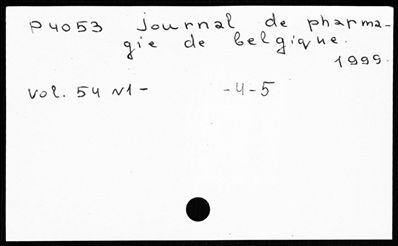 P4053 Journal de pharma-
gie de belgique.
1999.
Vol. 54 N1- -4-5